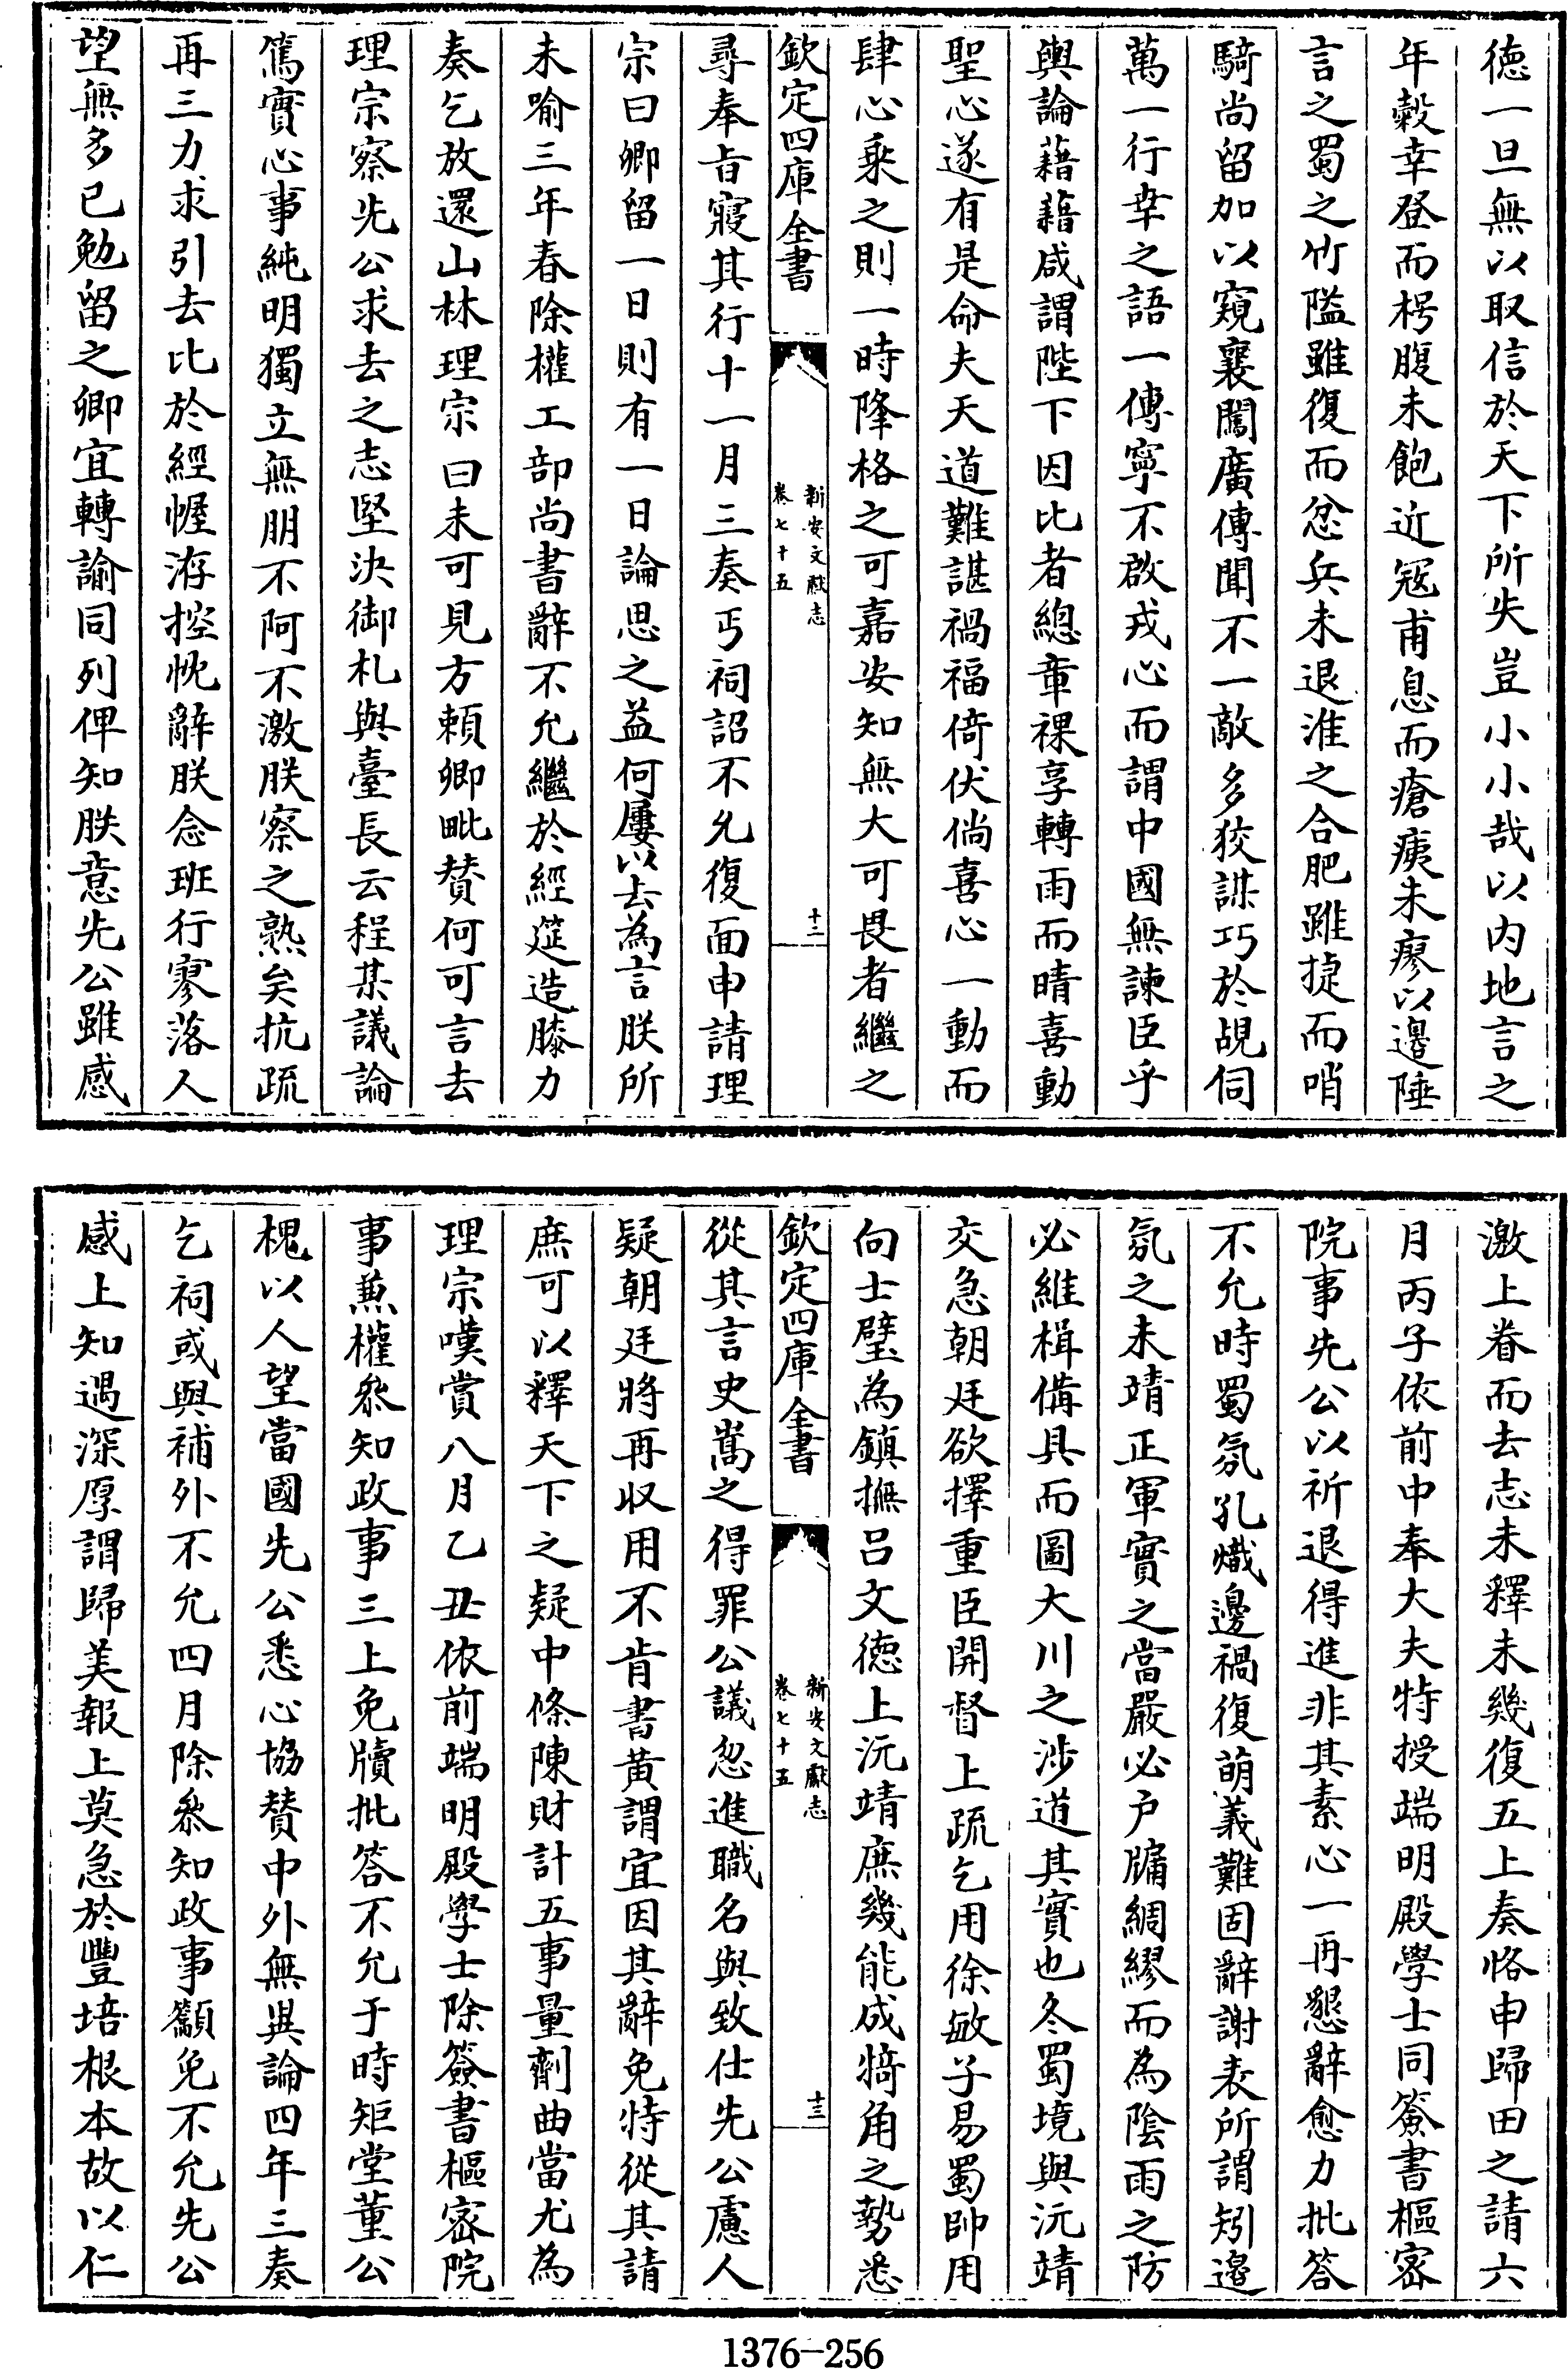 德一旦無以取信於天下所失豈小小哉以内地言之
年穀幸登而枵腹未飽近冦甫息而瘡痍未瘳以邊陲
言之蜀之竹隘雖復而忿兵未退淮之合肥雖捷而哨
騎尚留加以窺襄闖廣傳聞不一敵多狡謀巧於覘伺
萬一行幸之語一傳寧不啟戎心而謂中國無諫臣乎
輿論藉藉咸謂陛下因比者總章祼享轉雨而晴喜動
聖心遂有是命夫天道難諶禍福倚伏倘喜心一動而
肆心乗之則一時降格之可嘉安知無大可畏者繼之
欽定四庫全書
新安文獻志
卷七十五
十二
尋奉旨寢其行十一月三奏丐祠詔不允復面申請理
宗曰卿留一日則有一日論思之益何屢以去為言朕所
未喻三年春除權工部尚書辭不允繼於經筵造膝力
奏乞放還山林理宗曰未可見方頼卿毗賛何可言去
理宗察先公求去之志堅決御札與臺長云程某議論
篤實心事純明獨立無朋不阿不激朕察之熟矣抗疏
再三力求引去比於經幄洊控忱辭朕念班行寥落人
望無多已勉留之卿宜轉諭同列俾知朕意先公雖感
激上眷而去志未釋未幾復五上奏恪申歸田之請六
月丙子依前中奉大夫特授端明殿學士同簽書樞宻
院事先公以祈退得進非其素心一再懇辭愈力批答
不允時蜀氛孔熾邊禍復萌義難固辭謝表所謂矧邉
氛之未靖正軍實之當嚴必户牖綢繆而為隂雨之防
必維楫備具而圖大川之涉道其實也冬蜀境與沅靖
交急朝廷欲擇重臣開督上疏乞用徐敏子易蜀帥用
向士璧為鎮撫吕文德上沅靖庶幾能成犄角之勢悉
欽定四庫全書
新安文獻志
卷七十五
十三
從其言史嵩之得罪公議忽進職名與致仕先公慮人
疑朝廷將再収用不肯書黃謂宜因其辭免特從其請
庶可以釋天下之疑中條陳財計五事量劑曲當尤為
理宗嘆賞八月乙丑依前端明殿學士除簽書樞宻院
事兼權叅知政事三上免牘批答不允于時矩堂董公
槐以人望當國先公悉心協賛中外無異論四年三奏
乞祠或與補外不允四月除叅知政事籲免不允先公
感上知遇深厚謂歸美報上莫急於豐培根本故以仁
1376-256